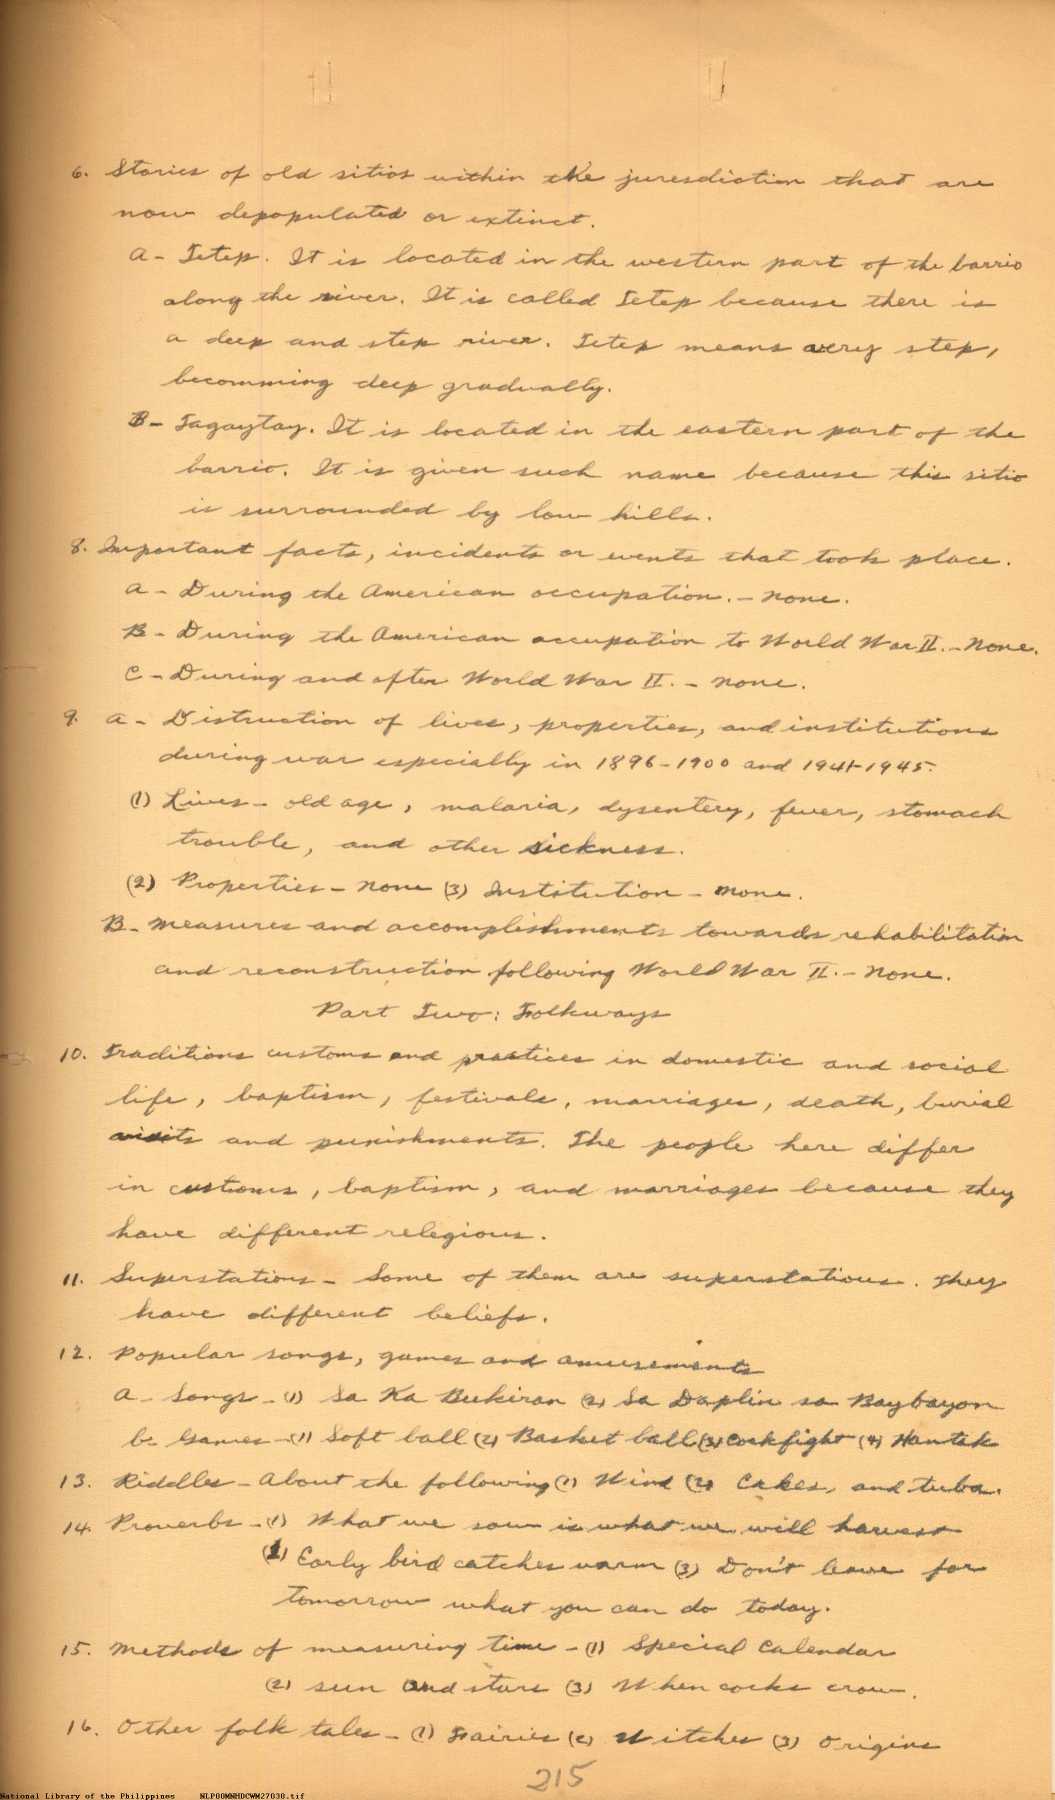 6. Stories of old sitios within the juresdiction that are
now depopulated or extinct.
A - Tetep. It is located in the western part of the barrio
along the river. It is called Tetep because there is
a deep and step river. Tetep means very step,
becomming deep gradually.
B - Tagaytay. It is located in the eastern part of the
barrio. It is given such name because this sitio
is surrounded by low hills.
8. Important facts, incidents or events that took place.
A - During the American occupation. - None.
B - During the American occupation to World War II. - None.
C - During and after World War II. - None.
9. A - Distruction of lives, properties, and institutions
during war especially in 1896-1900 and 1941-1945.
(1) Lives - old age, malaria, dysentery, fever, stomach
trouble, and other sickness.
(2) Properties - None (3) Institution - None.
B - Measures and accomplishments towards rehabilitation
and reconstruction following World War II. - None.
Part Two: Folkways
10. Traditions customs and practices in domestic and social
life, baptism, festivals, marriages, death, burial
visits and punishments. The people here differ
in customs, baptism, and marriages because they
have different religious.
11. Superstations - Some of them are superstatious. They
have different beliefs.
12. Popular songs, games and amusements
A - Songs - (1) Sa Ka Bukiran (2) Sa Daplin sa Baybayon
b. Games - (1) Soft ball (2) Basket ball (3) Cockfight (4) Hantak
13. Riddles - About the following (1) Wind (2) Cakes, and tuba.
14. Proverbs - (1) What we sow is what we will harvest
(2) Early bird catches warm (3) Don't leave for
tomorrow what you can do today.
15. Methods of measuring time - (1) Special Calendar
(2) sun and stars (3) When cocks crow.
16. Other folk tales - (1) Fairies (2) Witches (3) Origins
215
National Library of the Philippines NLP00MNHDCWM27030.tif